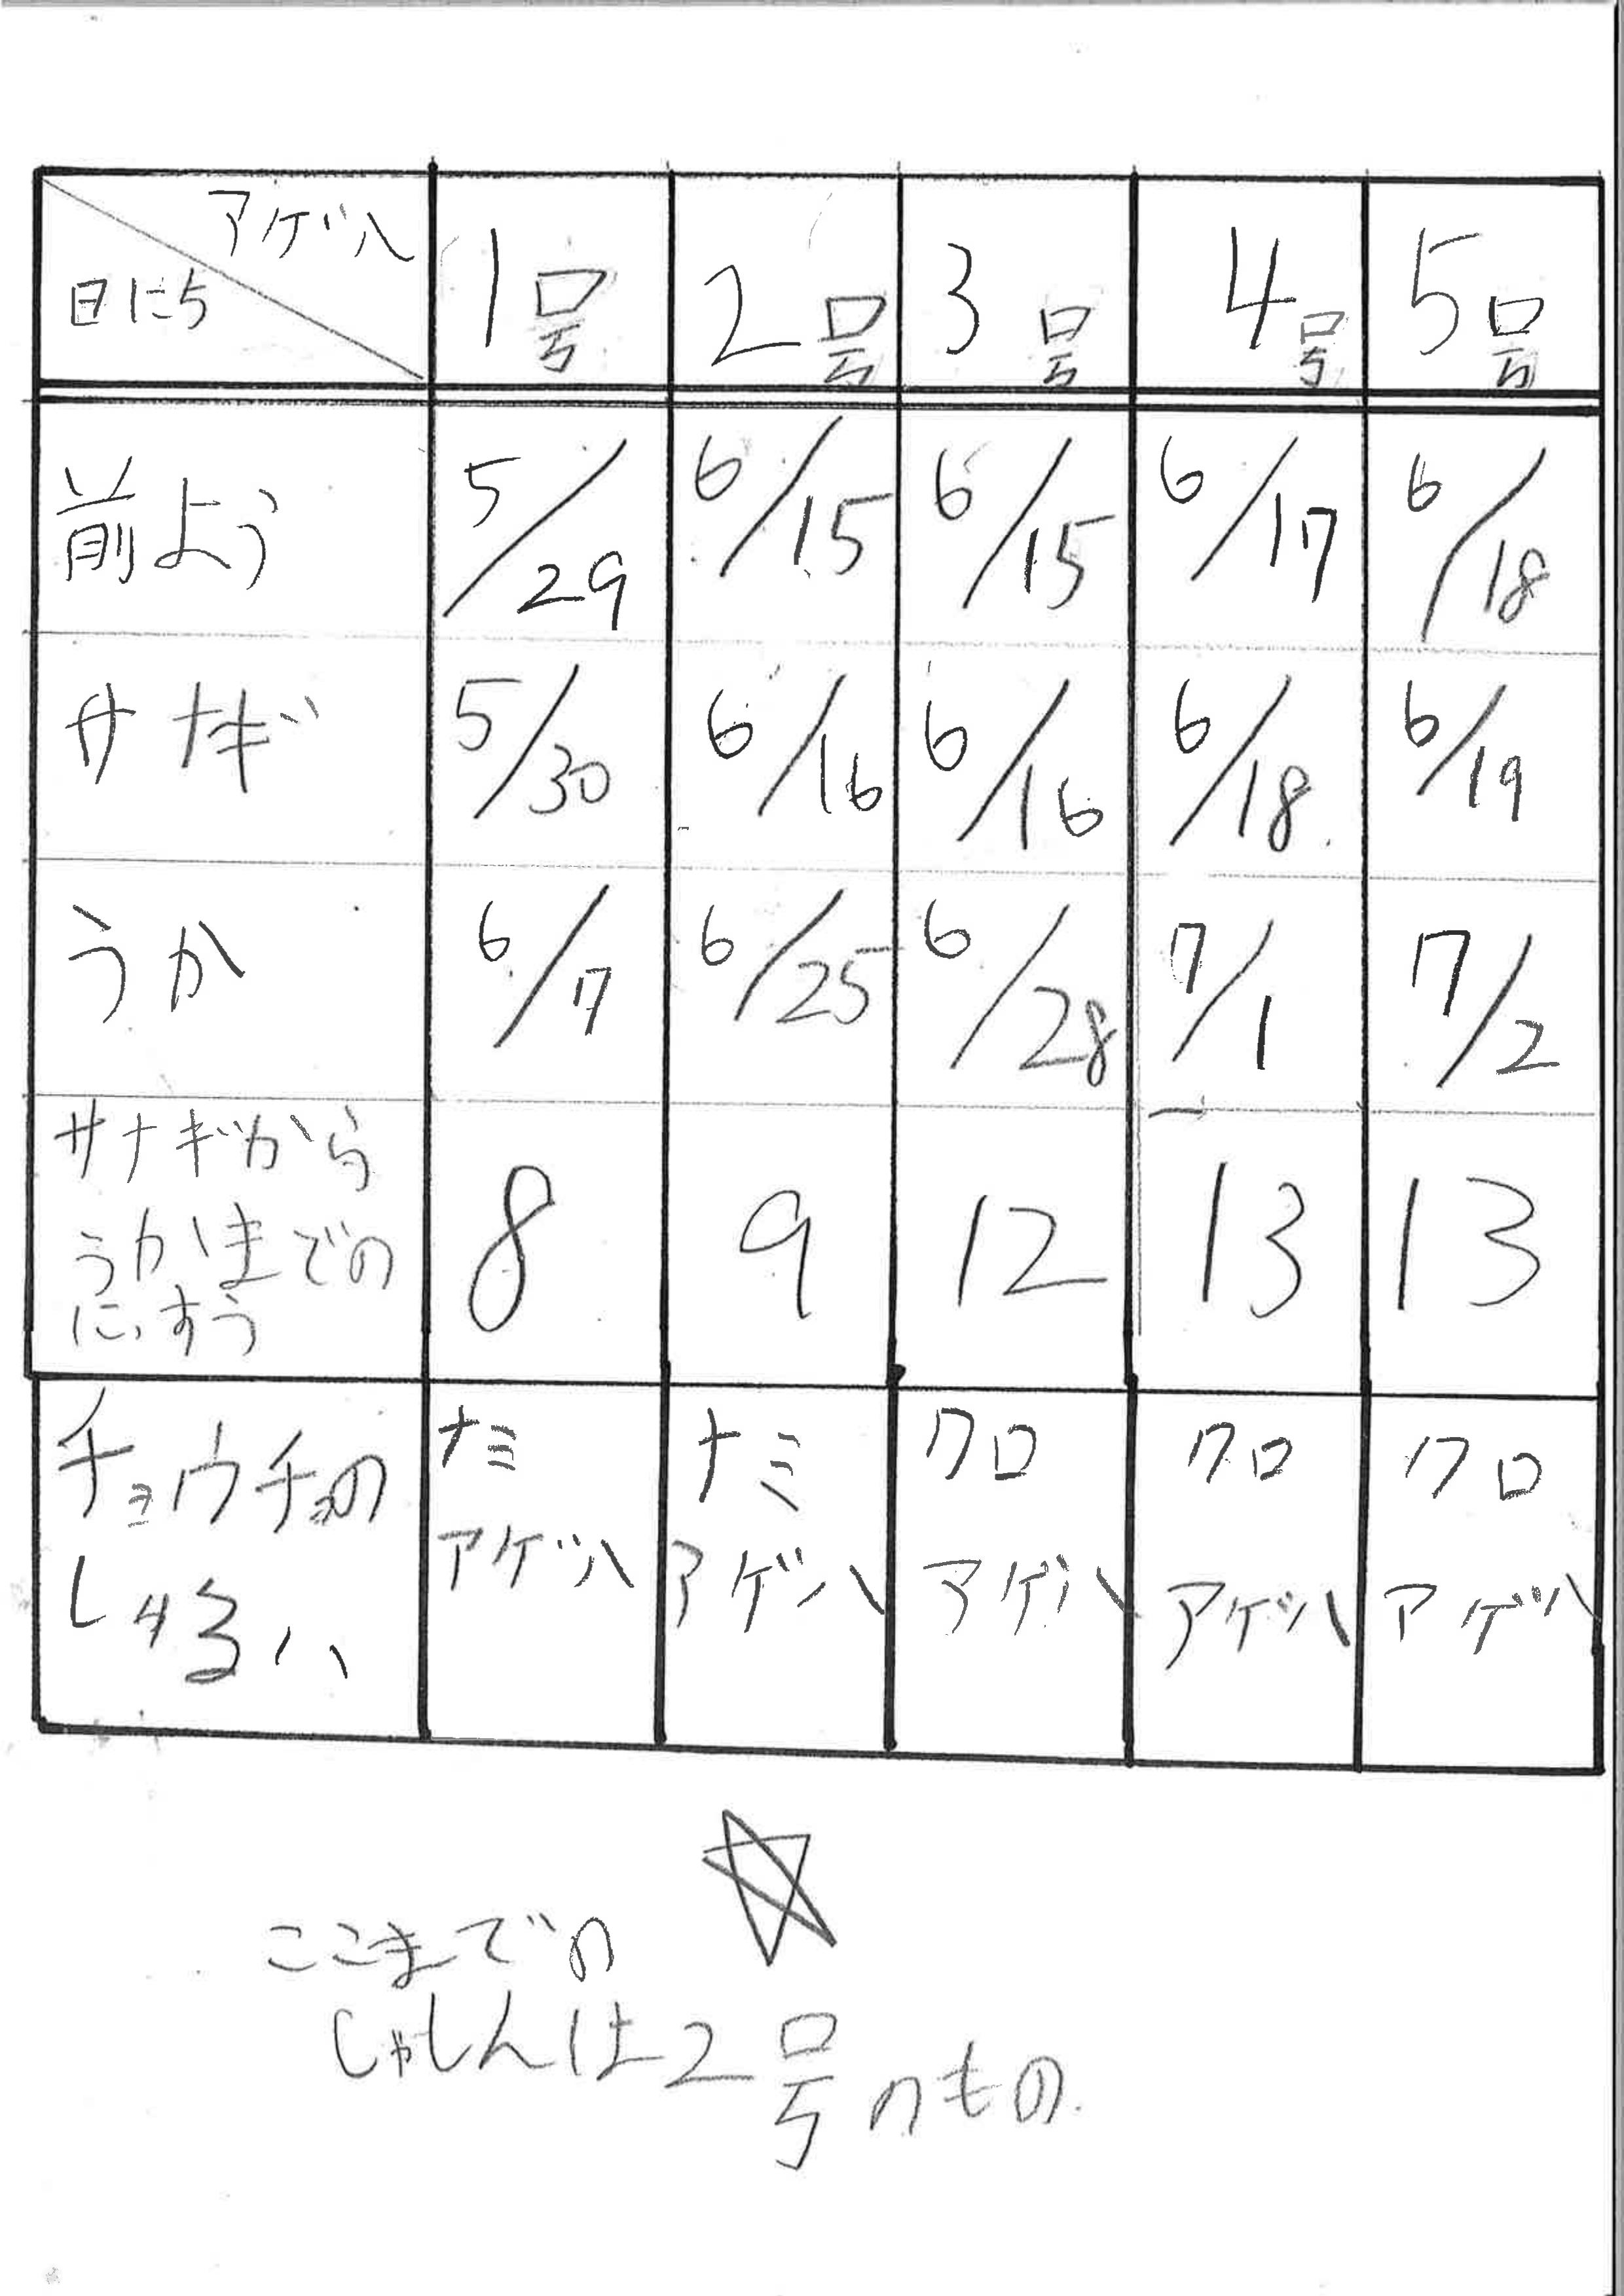 アゲハ
日にち
1号 2号 3号 4号 5号
前よう 5/29 6/15 6/15 6/17 6/18
サナギ 5/30 6/16 6/16 6/18 6/19
うか 6/7 6/25 6/28 7/1 7/2
サナギから
うかまでの
にっすう
8 9 12 13 13
チョウチョの
しゅるい
ナミ ナミ クロ クロ クロ
アゲハ アゲハ アゲハ アゲハ アゲハ
ここまでの
しゃしんは2号のもの